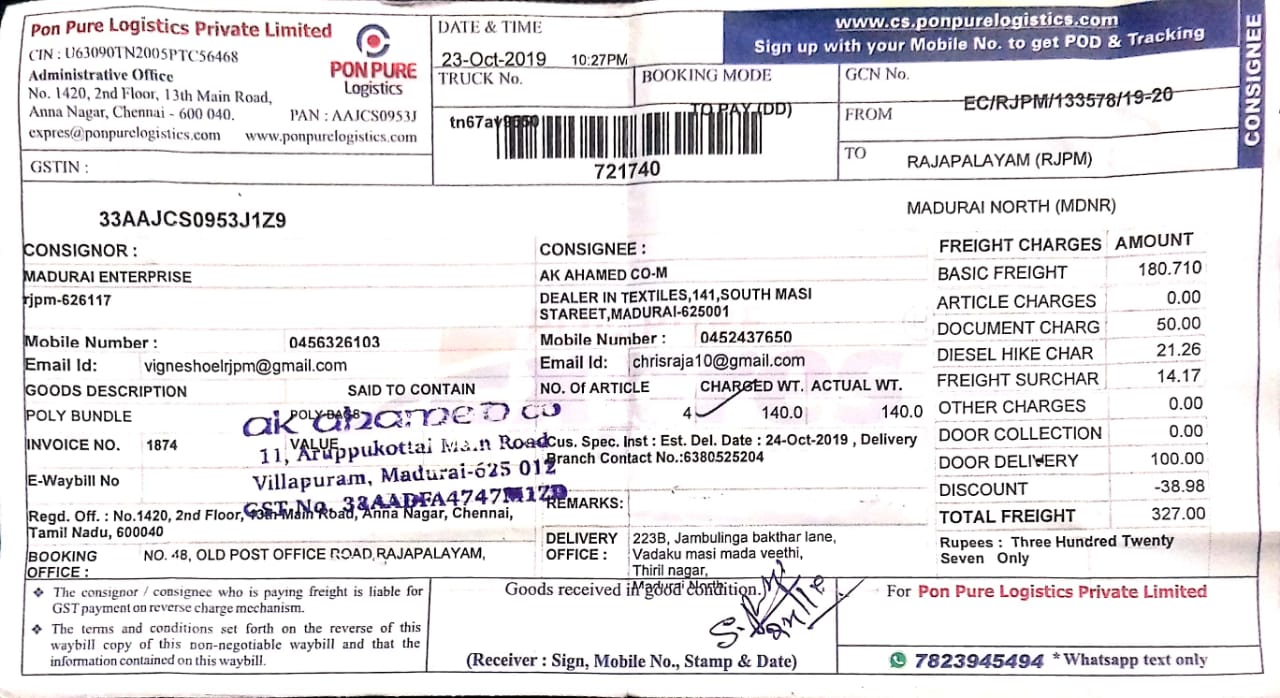 Pon Pure Logistics Private Limited
CIN : U63090TN2005PTC56468
Administrative Office
No. 1420, 2nd Floor, 13th Main Road,
Anna Nagar, Chennai - 600 040.
PAN : AAJCS0953J
expres@ponpurelogistics.com www.ponpurelogistics.com
PON PURE
Logistics
GSTIN :
33AAJCS0953J1Z9
DATE & TIME
23-Oct-2019 10:27PM
TRUCK No.
BOOKING MODE
TO PAY (DD)
721740
www.cs.ponpurelogistics.com
Sign up with your Mobile No. to get POD & Tracking
CONSIGNEE
GCN No.
EC/RJPM/133578/19-20
FROM
TO
RAJAPALAYAM (RJPM)
MADURAI NORTH (MDNR)
CONSIGNOR :
MADURAI ENTERPRISE
rjpm-626117
Mobile Number : 0456326103
Email Id: vigneshoelrjpm@gmail.com
CONSIGNEE :
AK AHAMED CO-M
DEALER IN TEXTILES,141,SOUTH MASI
STAREET,MADURAI-625001
Mobile Number : 0452437650
Email Id: chrisraja10@gmail.com
GOODS DESCRIPTION SAID TO CONTAIN
POLY BUNDLE POLY BAGS
INVOICE NO. 1874 VALUE
E-Waybill No
ak ahamed co
11, Aruppukottai Main Road
Villapuram, Madurai-625 012
GST No. 33AADFA4747M1ZD
NO. Of ARTICLE CHARGED WT. ACTUAL WT.
4 140.0 140.0
Cus. Spec. Inst : Est. Del. Date : 24-Oct-2019 , Delivery
Branch Contact No.:6380525204
REMARKS:
Regd. Off. : No.1420, 2nd Floor, 13th Main Road, Anna Nagar, Chennai,
Tamil Nadu, 600040
BOOKING OFFICE : NO. 48, OLD POST OFFICE ROAD,RAJAPALAYAM,
DELIVERY OFFICE :
223B, Jambulinga bakthar lane,
Vadaku masi mada veethi,
Thiril nagar,
Madurai North
FREIGHT CHARGES AMOUNT
BASIC FREIGHT 180.710
ARTICLE CHARGES 0.00
DOCUMENT CHARG 50.00
DIESEL HIKE CHAR 21.26
FREIGHT SURCHAR 14.17
OTHER CHARGES 0.00
DOOR COLLECTION 0.00
DOOR DELIVERY 100.00
DISCOUNT -38.98
TOTAL FREIGHT 327.00
Rupees : Three Hundred Twenty
Seven Only
❖ The consignor / consignee who is paying freight is liable for
GST payment on reverse charge mechanism.
❖ The terms and conditions set forth on the reverse of this
waybill copy of this non-negotiable waybill and that the
information contained on this waybill.
Goods received in good condition.
(Receiver : Sign, Mobile No., Stamp & Date)
For Pon Pure Logistics Private Limited
7823945494 *Whatsapp text only